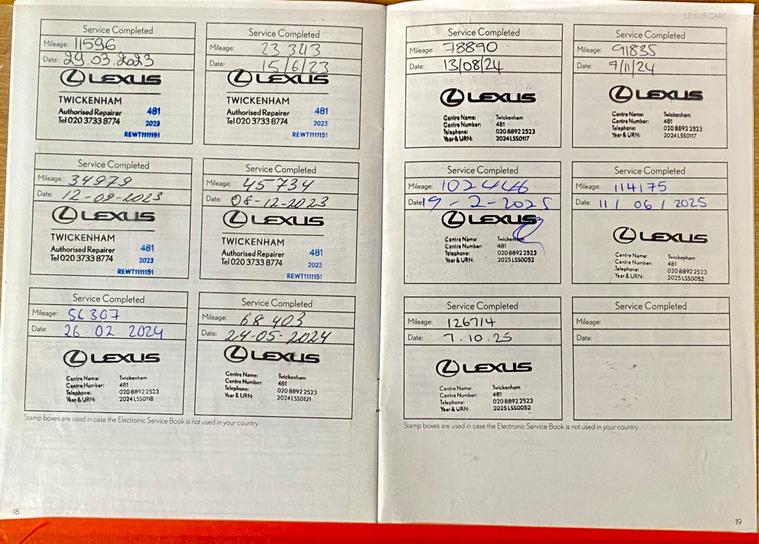 Service Completed
Mileage: 11596
Date: 29.03.2023
LEXUS
TWICKENHAM
Authorised Repairer 481
Tel 020 3733 8774 2023
REWT1111151
Service Completed
Mileage: 23 343
Date: 15/6/23
LEXUS
TWICKENHAM
Authorised Repairer 481
Tel 020 3733 8774 2023
REWT1111151
Service Completed
Mileage: 34979
Date: 12-09-2023
LEXUS
TWICKENHAM
Authorised Repairer 481
Tel 020 3733 8774 2023
REWT1111151
Service Completed
Mileage: 45 734
Date: 08-12-2023
LEXUS
TWICKENHAM
Authorised Repairer 481
Tel 020 3733 8774 2023
REWT1111151
Service Completed
Mileage: 56307
Date: 26.02.2024
LEXUS
Centre Name: Twickenham
Centre Number: 481
Telephone: 020 8892 2523
Year & URN: 2024 LSS0118
Service Completed
Mileage: 68 403
Date: 24-05-2024
LEXUS
Centre Name: Twickenham
Centre Number: 481
Telephone: 020 8892 2523
Year & URN: 2024 LSS0121
Stamp boxes are used in case the Electronic Service Book is not used in your country.
18
LEXUS CARE
Service Completed
Mileage: 78890
Date: 13/08/24
LEXUS
Centre Name: Twickenham
Centre Number: 481
Telephone: 020 8892 2523
Year & URN: 2024 LSS0117
Service Completed
Mileage: 91835
Date: 7/11/24
LEXUS
Centre Name: Twickenham
Centre Number: 481
Telephone: 020 8892 2523
Year & URN: 2024 LSS0117
Service Completed
Mileage: 102446
Date: 19-2-2025
LEXUS
Centre Name: Twickenham
Centre Number: 481
Telephone: 020 8892 2523
Year & URN: 2025 LSS0052
Service Completed
Mileage: 114175
Date: 11/06/2025
LEXUS
Centre Name: Twickenham
Centre Number: 481
Telephone: 020 8892 2523
Year & URN: 2025 LSS0052
Service Completed
Mileage: 126714
Date: 7.10.25
LEXUS
Centre Name: Twickenham
Centre Number: 481
Telephone: 020 8892 2523
Year & URN: 2025 LSS0052
Service Completed
Mileage:
Date:
Stamp boxes are used in case the Electronic Service Book is not used in your country.
19